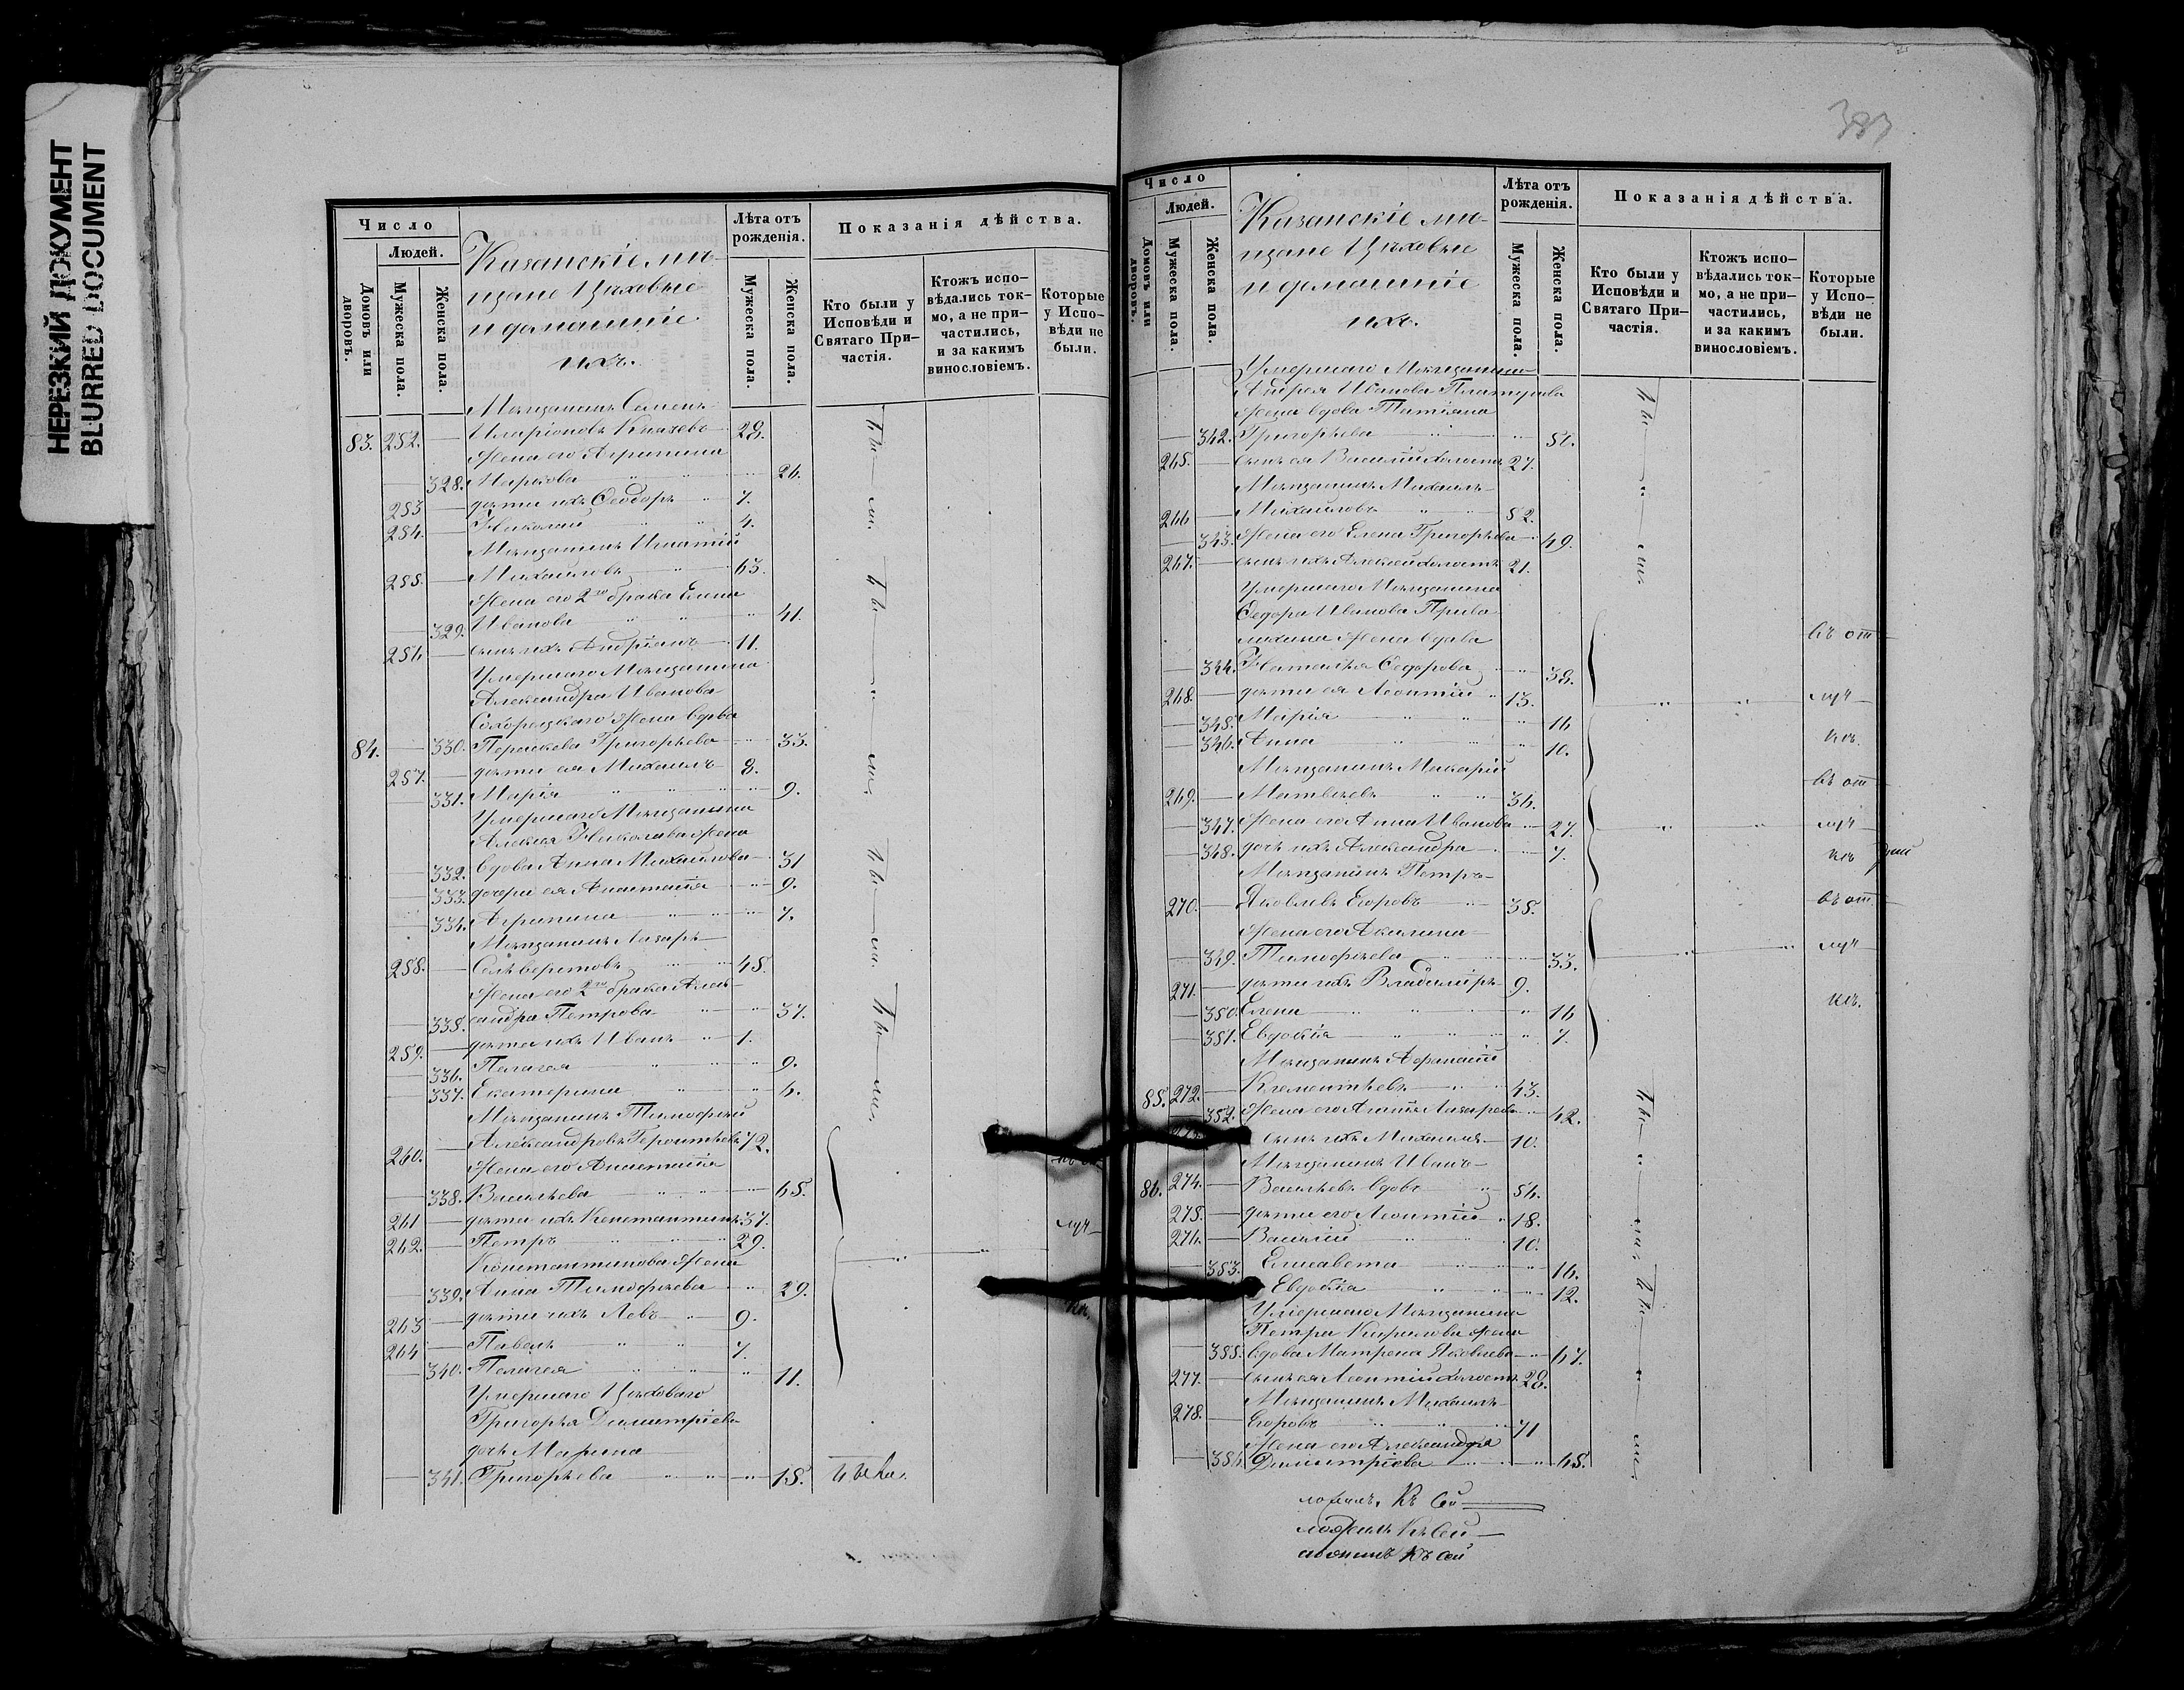 НЕРЕЗКИЙ ДОКУМЕНТ
BLURRED DOCUMENT
Число
Людей.
Домовъ или дворовъ.
Мужеска пола.
Женска пола.
Казанскіе мѣ-
щане Цѣховые
и домашніе
ихъ.
Лѣта отъ рожденія.
Мужеска пола.
Женска пола.
Показанія дѣйства.
Кто были у Исповѣди и Святаго При-частія.
Ктожъ испо-вѣдались ток-мо, а не при-частились, и за какимъ винословіемъ.
Которые у Испо-вѣди не были.
Мѣщанинъ Семенъ
83. 252. — Иларіоновъ 28.
Жена его Агрипина
328. Маркова 26.
253 — дѣти ихъ Ѳеодоръ 7.
254. — Николай 4.
Мѣщанинъ Игнатій
255. — Михайловъ 63.
Жена его 2го брака Елена
329. Иванова 41.
256 — сынъ ихъ Андріанъ 11.
Умершаго Мѣщанина
Александра Иванова
Жена вдова
84. — 330. Григорьева 33.
257. — дѣти ея Михаилъ 8.
331. Марія 9.
Умершаго Мѣщанина
Алексея Николаева Жена
332. вдова Анна Михайлова 31
333. дочери ея Анастасія 9.
334. Агрипина 7.
Мѣщанинъ Лазарь
258. — Селиверстовъ 45.
Жена его 2го брака Алек-
335. сандра Петрова 37.
259. — дѣти ихъ Иванъ 1.
336. Пелагея 9.
337. Екатерина 6.
Мѣщанинъ Тимофей
260. — Александровъ 72.
Жена его Анастасія
338. Васильева 65.
261 — дѣти ихъ Константинъ 37.
262. — Петръ 29.
Константинова Жена
339. Анна Тимофѣева 29.
263 — дѣти ихъ Левъ 9.
264 — Павелъ 7.
340. Пелагея 11.
Умершаго Цѣховаго
Григорья Димитріева
дочь Марина
341. Григорьева 18.
луч
383
Число
Людей.
Домовъ или дворовъ.
Мужеска пола.
Женска пола.
Казанскіе мѣ-
щане Цѣховые
и домашніе
ихъ.
Лѣта отъ рожденія.
Мужеска пола.
Женска пола.
Показанія дѣйства.
Кто были у Исповѣди и Святаго При-частія.
Ктожъ испо-вѣдались ток-мо, а не при-частились, и за какимъ винословіемъ.
Которые у Испо-вѣди не были.
Умершаго Мѣщанина
Андрея Иванова
Жена вдова Татіяна
342. Григорьева
265. — сынъ ея Василій холостъ 27.
Мѣщанинъ Михаилъ
266 — Михайловъ 52.
343. Жена его Елена Григорьева 49.
267. — сынъ ихъ Алексей холостъ 21.
Умершаго Мѣщанина
Ѳедора Иванова
Жена вдова
въ от
344. Наталья Ѳедорова 38.
268. — дѣти ея Леонтій 13.
луч
345. Марія 16
346. Анна 10.
кѣ.
Мѣщанинъ Макарій
въ от
269. — Матвѣевъ 36.
347. Жена его Анна Иванова 27.
луч
348. дочь ихъ Александра 7.
кѣ
Мѣщанинъ Петръ
270. — Яковлевъ Егоровъ 35.
въ от
Жена его Акилина
349. Тимофѣева 33.
луч
271. — дѣти ихъ Владиміръ 9.
кѣ.
350. Елена 16
351. Евдокія 7.
Мѣщанинъ Афанасій
85. 272. — Клементьевъ 43.
352. Жена его Анна Лазарева 42.
сынъ ихъ Михаилъ 10.
Мѣщанинъ Иванъ
86. 274. — Васильевъ вдовъ 56.
275. — дѣти его Леонтій 18.
276. — Василій 10.
353. Елисавета 16.
Евдокія 12.
Умершаго Мѣщанина
Петра Кирилова Жена
355. вдова Матрена Яковлева 67.
277. — сынъ ея Леонтій холостъ 28.
Мѣщанинъ Михаилъ
278. — Егоровъ 71
Жена его Александра
356. Димитріева 45.